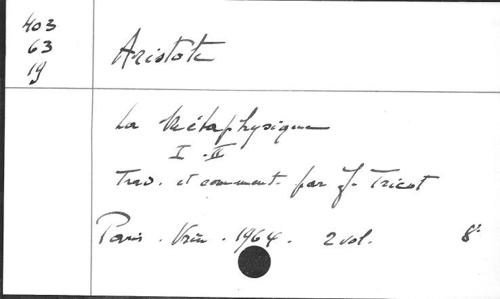 403
63
19
Aristote
La Métaphysique
I - II
Trad. et comment. par J. Tricot
Paris. Vrin. 1964. 2 vol. 8°